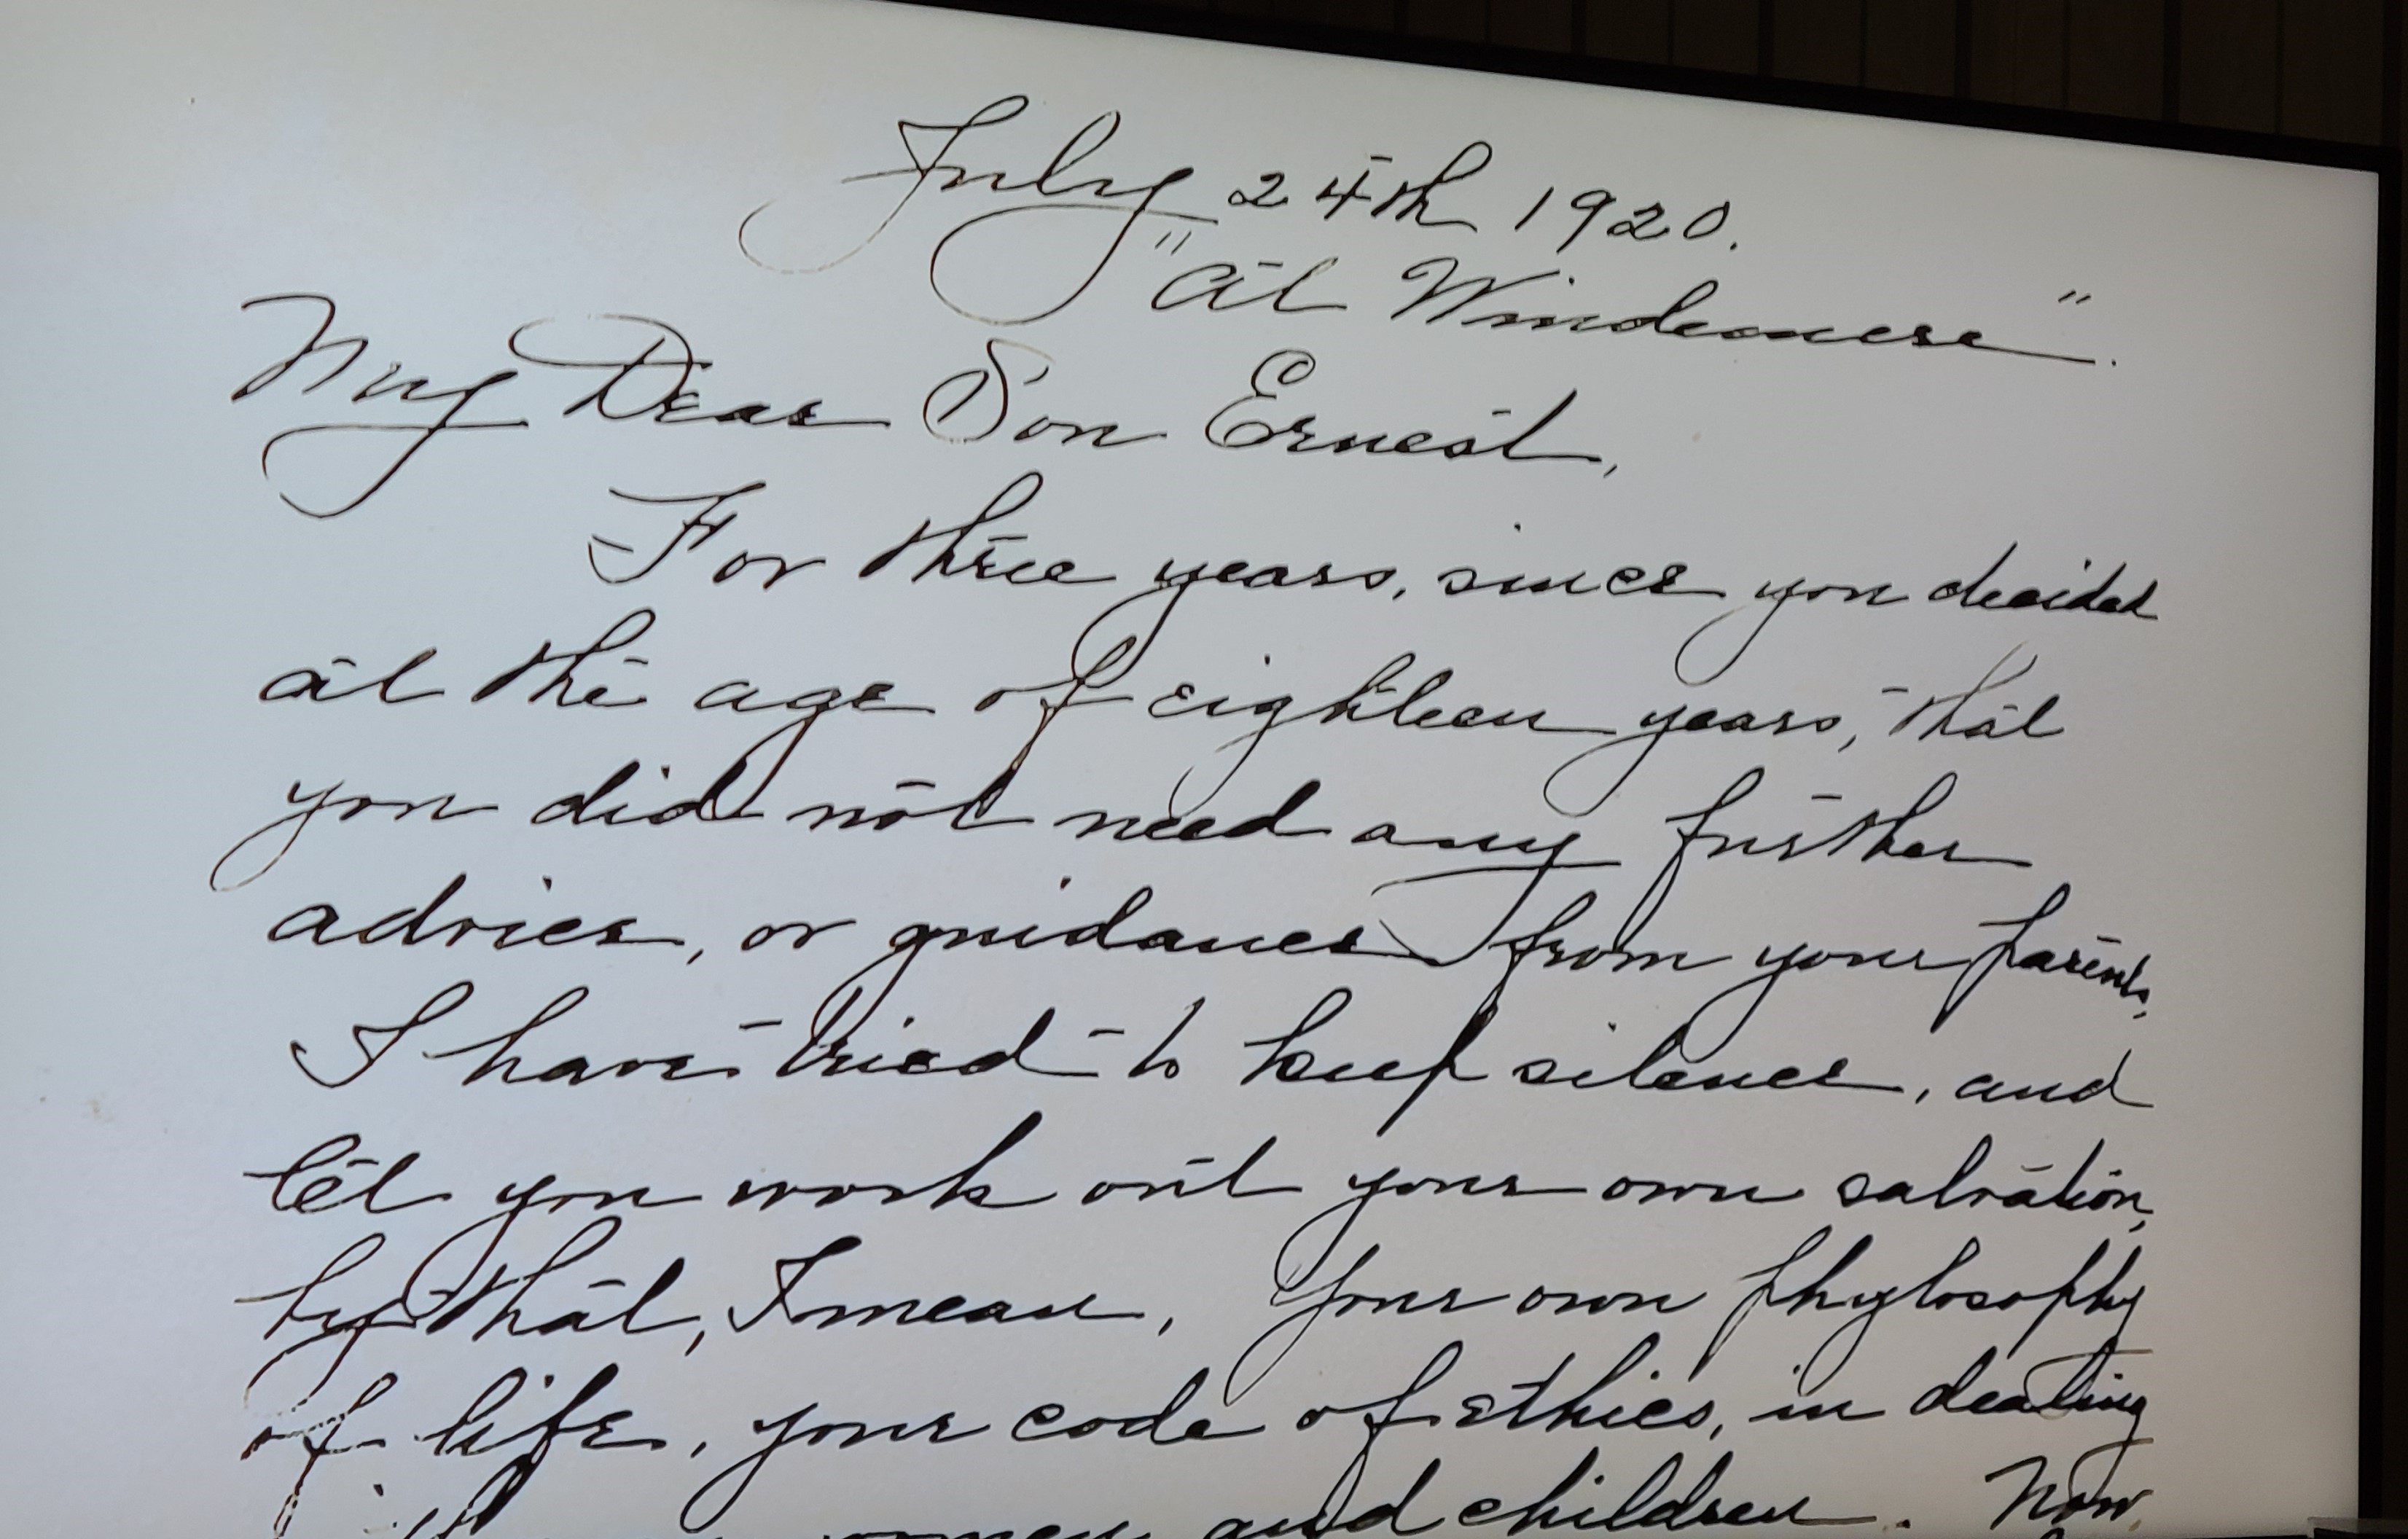 July 24th 1920.
"At Windemere".
My Dear Son Ernest,
For three years, since you decided
at the age of eighteen years, that
you did not need any further
advice, or guidance from your parents,
I have tried to keep silence, and
let you work out your own salvation,
by that, I mean, your own phylosophy
of life, your code of ethics, in dealing
women and children. Now